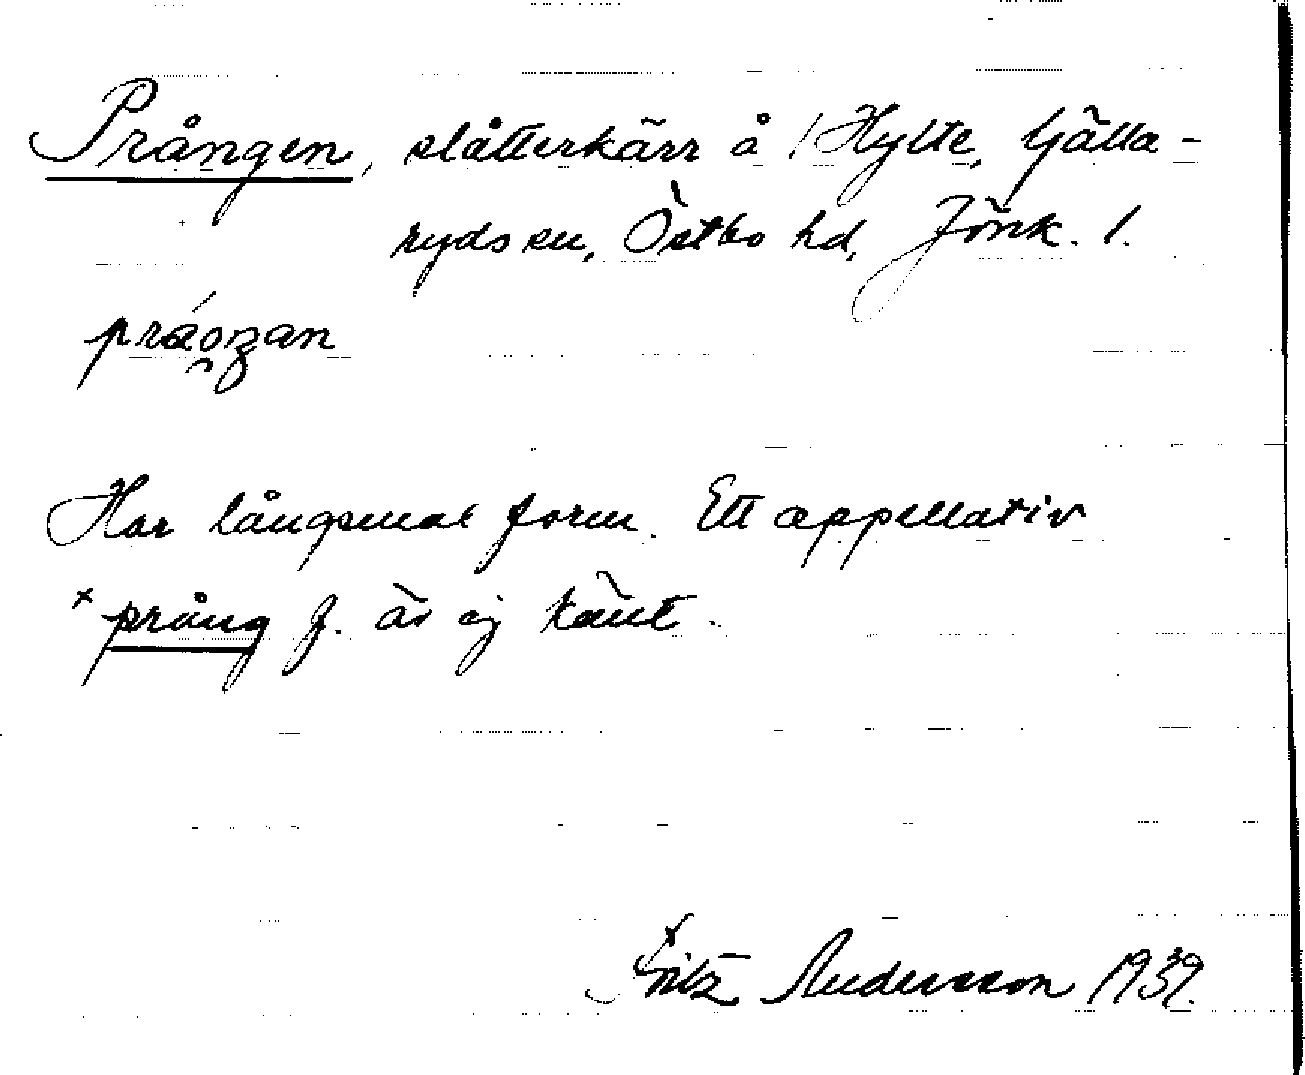 Prången, slåtterkärr å Hylte, Gälla-
ryds sn, Östbo hd, Jönk. l.
Har långsmal form. Ett appellativ
*prång f. är ej känt.
Fritz Andersson 1939.